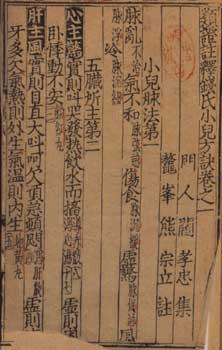 類證註釋錢氏小兒方訣卷之一
門人 閻孝忠 集
鼇峯 熊宗立 註
小兒脉法第一
脉亂不治 氣不和 傷食 虛驚 風
冷
五臟所主第二
心主驚實則叫哭發熱飲水而搐 虛則
卧悸動不安
肝主風實則目直大叫呵欠項急頓悶 虛則
牙多欠氣熱則外生氣溫則內生